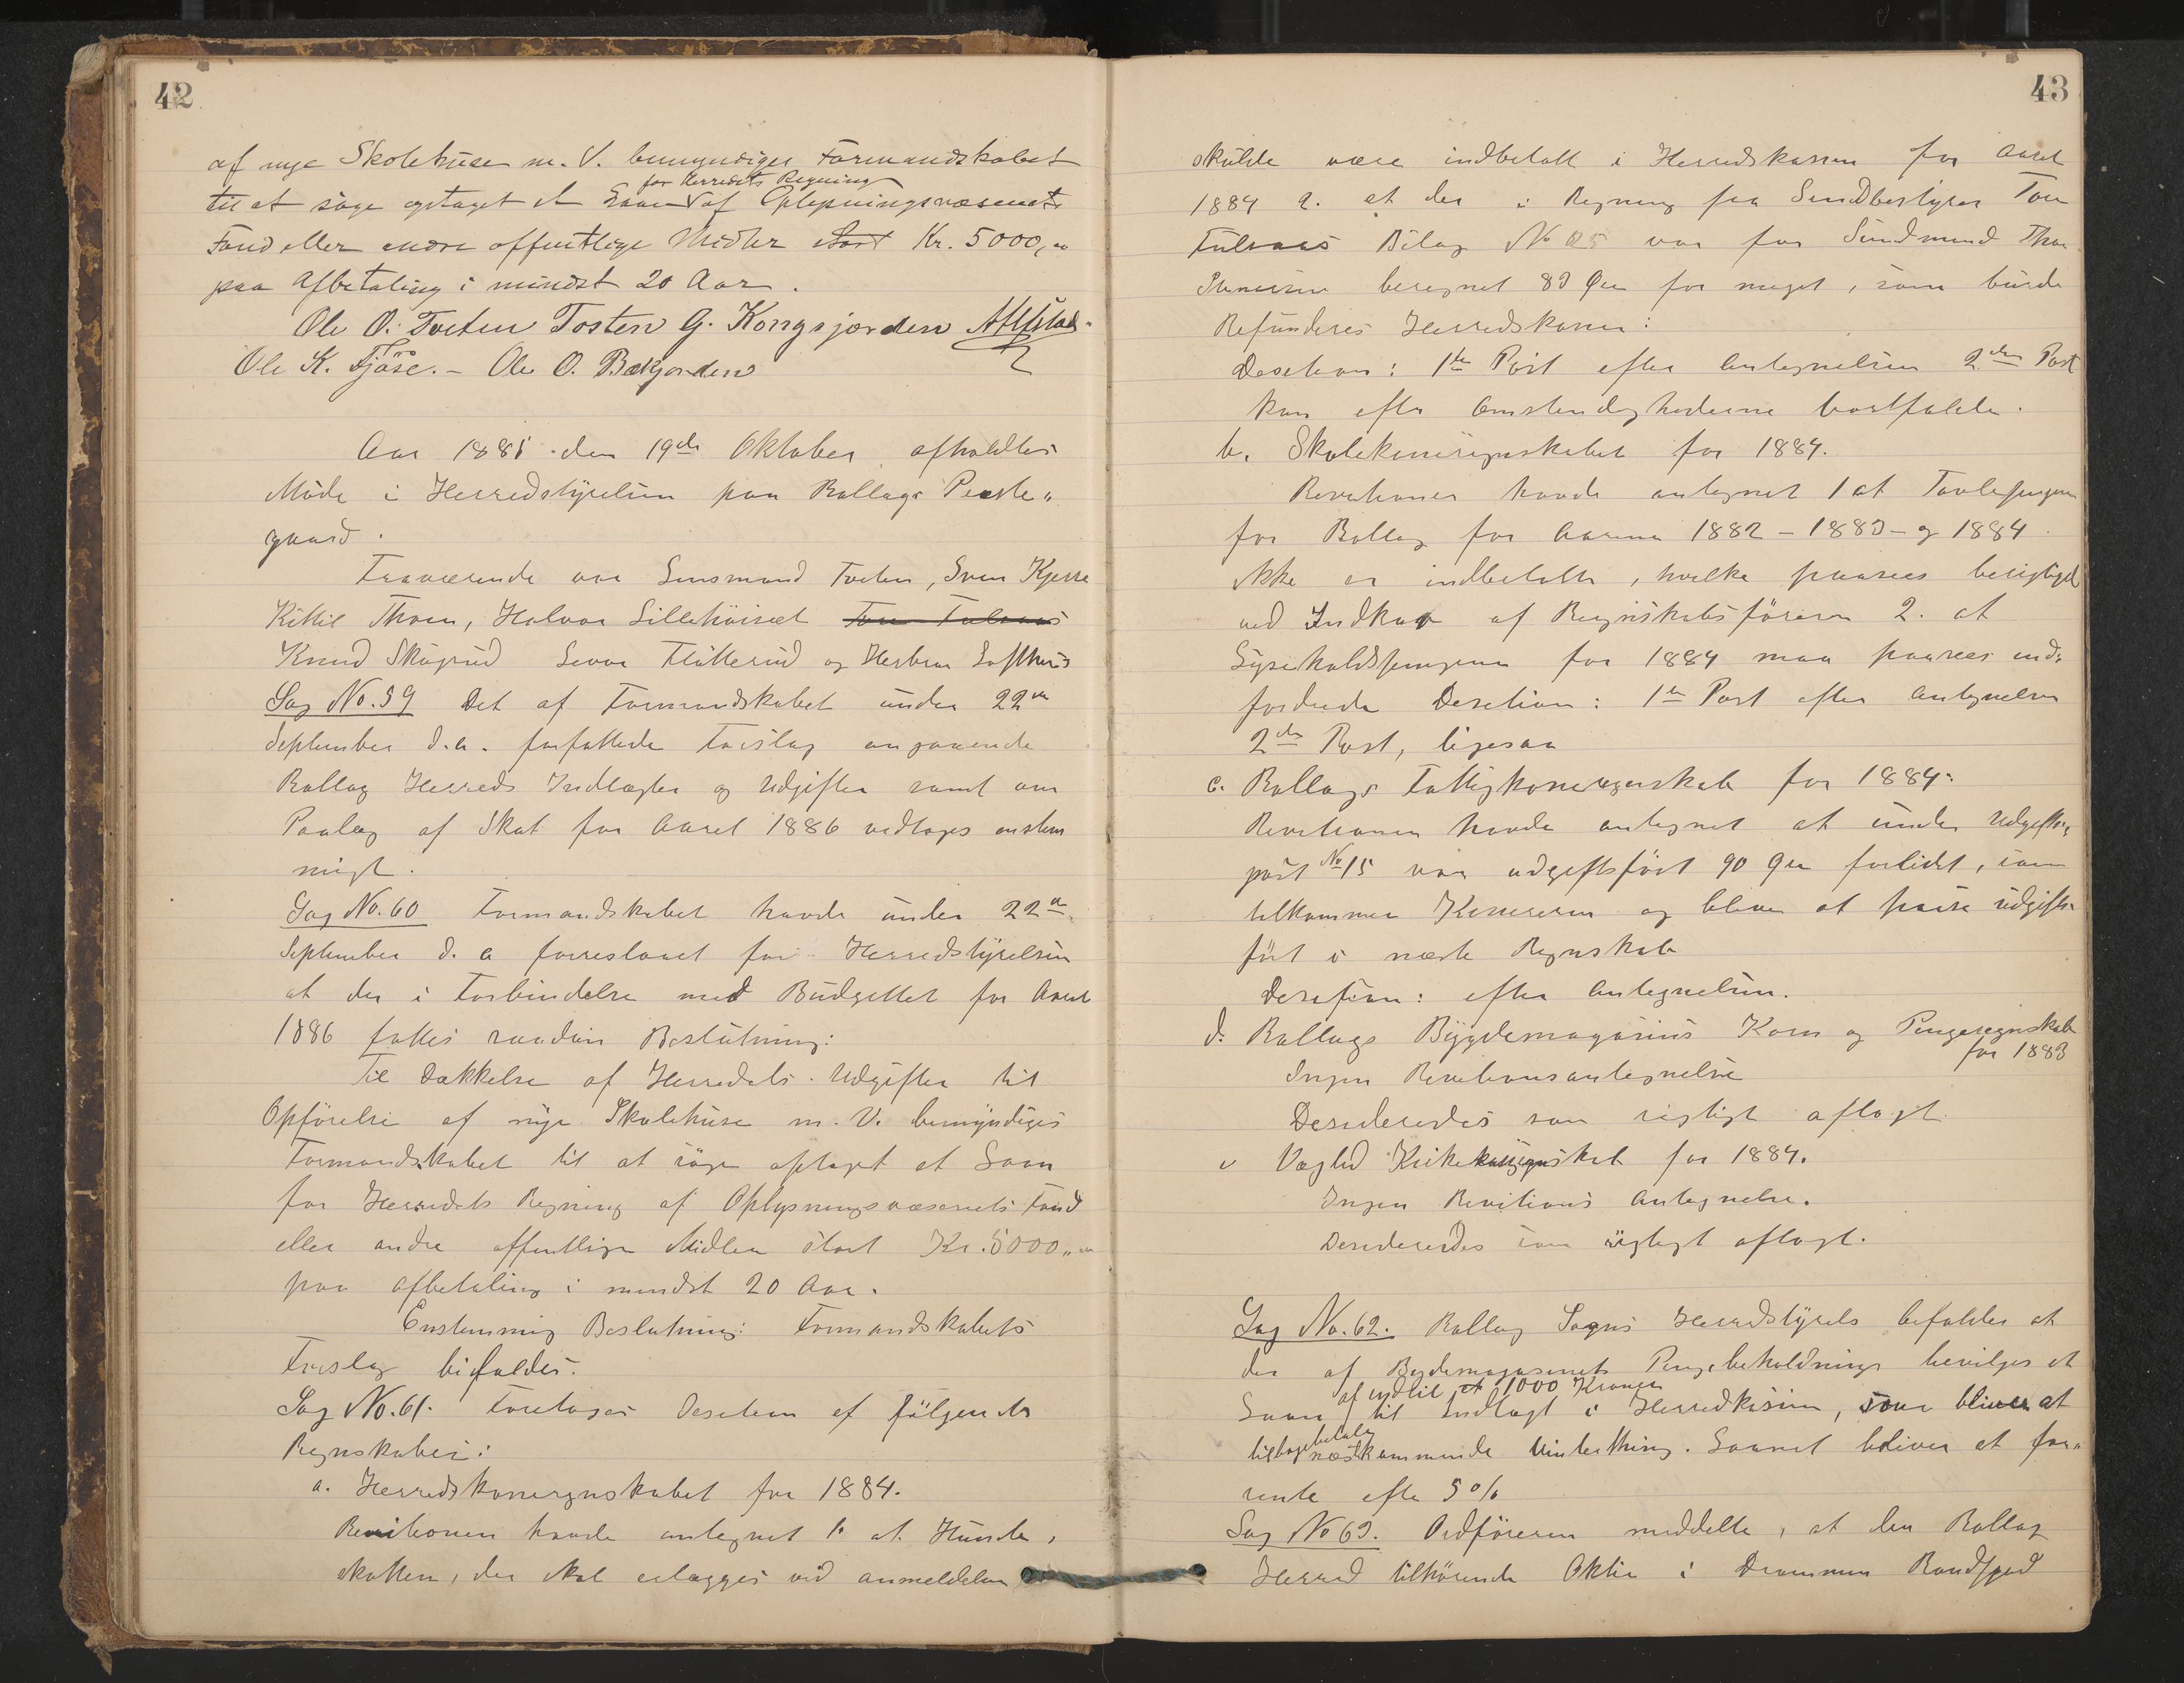 42
af nye Skolehuse m. V. bemyndiges Formandskabet
for Herredets Regning
til at söge optaget et Laan af Oplysningsvæsenets
Fond eller andre offentlige Midler stort Kr. 5000,00
paa Afbetaling i mindst 20 Aar.
Ole O. Tveten Tosten G. Kongsjorden
Ole K. Fjöse. - Ole O. Bækjorden
Aar 1885 den 19de Oktober afholdtes
Möde i Herredstyrelsen paa Rollags Preste-
gaard.
Fraværende var Lensmand Tveten, Sven Kjerre
Kittil Thoen, Halvor Sillehöiset Tore Fulsaas
Knud Skogrud Levor Flötterud og Herbran Lofthus
Sag No. 59 Det af Formandskabet under 22de
September d.a. forfattede Forslag angaaende
Rollag Herreds Indtægter og Udgifter samt om
Paalæg af Skat for Aaret 1886 vedtoges enstem
migt.
Sag No. 60 Formandskabet havde under 22de
September d. a foreslaaet for Herredstyrelsen
at der i Forbindelse med Budgettet for Aaret
1886 fattes saadan Beslutning:
Til Dækkelse af Herredets Udgifter til
Opförelse af nye Skolehuse m. V. bemyndiges
Formandskabet til at söge optaget et Laan
for Herredets Regning af Oplysningsvæsenets Fond
eller andre offentlige Midler stort Kr. 5000,00
paa afbetaling i mindst 20 Aar.
Enstemmig Beslutning: Formandskabets
Forslag bifaldes.
Sag No. 61. Foretoges Desetion af fölgende
Regnskaber:
a. Herredskasseregnskabet for 1884.
Revisionen havde antegnet 1. at Hunde,
skatten, der skal erlægges ved anmeldelsen
43
skulde være indbetalt i Herredskassen for Aaret
1884 2. at der i Regning fra Sundbestyrer Tore
Fulsaas Bilag No 25 var for Sundmand Thor
beregnet 80 Øre for meget, som burde
Refunderes Herredskassen:
Desetion: 1te Post efter Antegnelsen 2den Post
kan efter Omstendighederne bortfalde.
b. Skolekasseregnskabet for 1884.
Revisionen havde antegnet 1 at Tavlepengene
for Rollag for Aarene 1882 - 1883 - og 1884
ikke er indbetalte, hvilke paasees besigtiget
ved Indkrav af Regnskabsföreren 2. at
Lyseholdspengene for 1884 maa paasees ind-
fordrede Desetion: 1te Post efter Antegnelsen
2den Post, ligesaa
c. Rollags Fattigkasseregnskab for 1884.
Revisionen havde antegnet at under Udgifts-
post No 15 var udgiftsfört 90 Øre forlidet, som
tilkommer Kassereren og bliver at passe udgifts-
fört i næste Regnskab
Desetion: efter Antegnelsen.
d. Rollags Bygdemagasins Korn og Pengeregnskab
for 1883
Ingen Revisionsantegnelse
Desideredes som rigtigt aflagt
e Veglid Kirkekasseregnskab for 1884.
Ingen Revisions Antegnelse.
Desideredes som rigtigt aflagt.
Sag No. 62. Rollag Sogns Herredstyrels befalder at
der af Bygdemagasinets Pengebeholdninge bevilges et
af indtil et 1000 Kroner
Laan til Indtægt i Herredkassen, som bliver at
tilbagebetale
næstkommende Vinterthing. Laanet bliver at for-
rente efter 5 %
Sag No 63. Ordföreren meddelte, at den Rollag
Herred tilhörende Aktie i Drammen Randsfjord